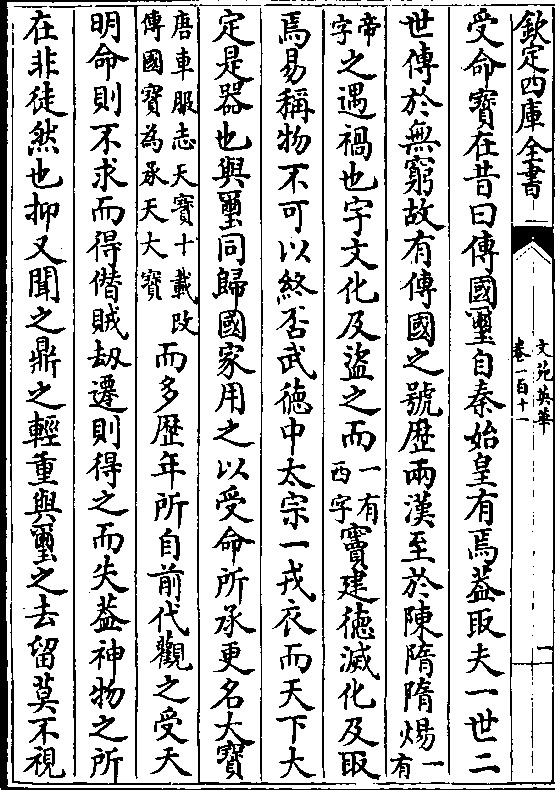 欽定四庫全書
文苑英華
卷一百十一
一
受命寳在昔曰傳國璽自秦始皇有焉葢取夫一世二
世傳於無窮故有傳國之號歴兩漢至於陳隋隋煬一有
帝字之遇禍也宇文化及盗之而一有西字竇建徳滅化及取
焉易稱物不可以終否武徳中太宗一戎衣而天下大
定是器也與璽同歸國家用之以受命所承更名大寳
唐車服志天寳十載改傳國寳為承天大寳而多歴年所自前代觀之受天
明命則不求而得僭賊刼遷則得之而失葢神物之所
在非徒然也抑又聞之鼎之輕重與璽之去留莫不視